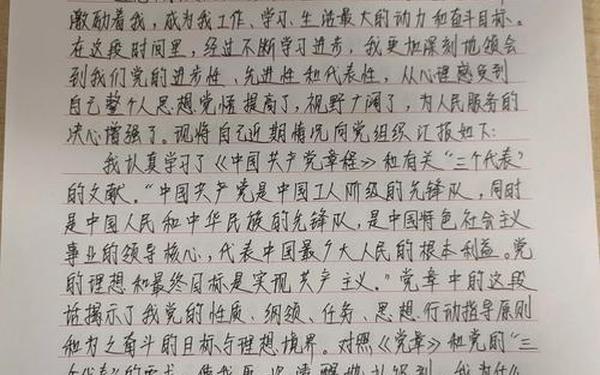 激励着我,成为我工作、学习、生活最大的动力和奋斗目标。
在这段时间里,经过不断学习进步,我更加深刻地领会
到我们党的进步性、先进性和代表性,从心理感受到
自己整个人思想觉悟提高了,视野广阔了,为人民服务的
决心增强了。现将自己近期情况向党组织汇报如下:
我认真学习了《中国共产党章程》和有关“三个代表”
的文献。“中国共产党是中国工人阶级的先锋队,同时
是中国人民和中华民族的先锋队,是中国特色社会主义
事业的领导核心,代表中国最广大人民的根本利益。党
的理想和最终目标是实现共产主义。”党章中的这段
话揭示了我党的性质、纲领、任务、思想、行动指导原则
和为之奋斗的目标与理想境界。对照《党章》和党的“三
个代表”的要求,使我再次清醒